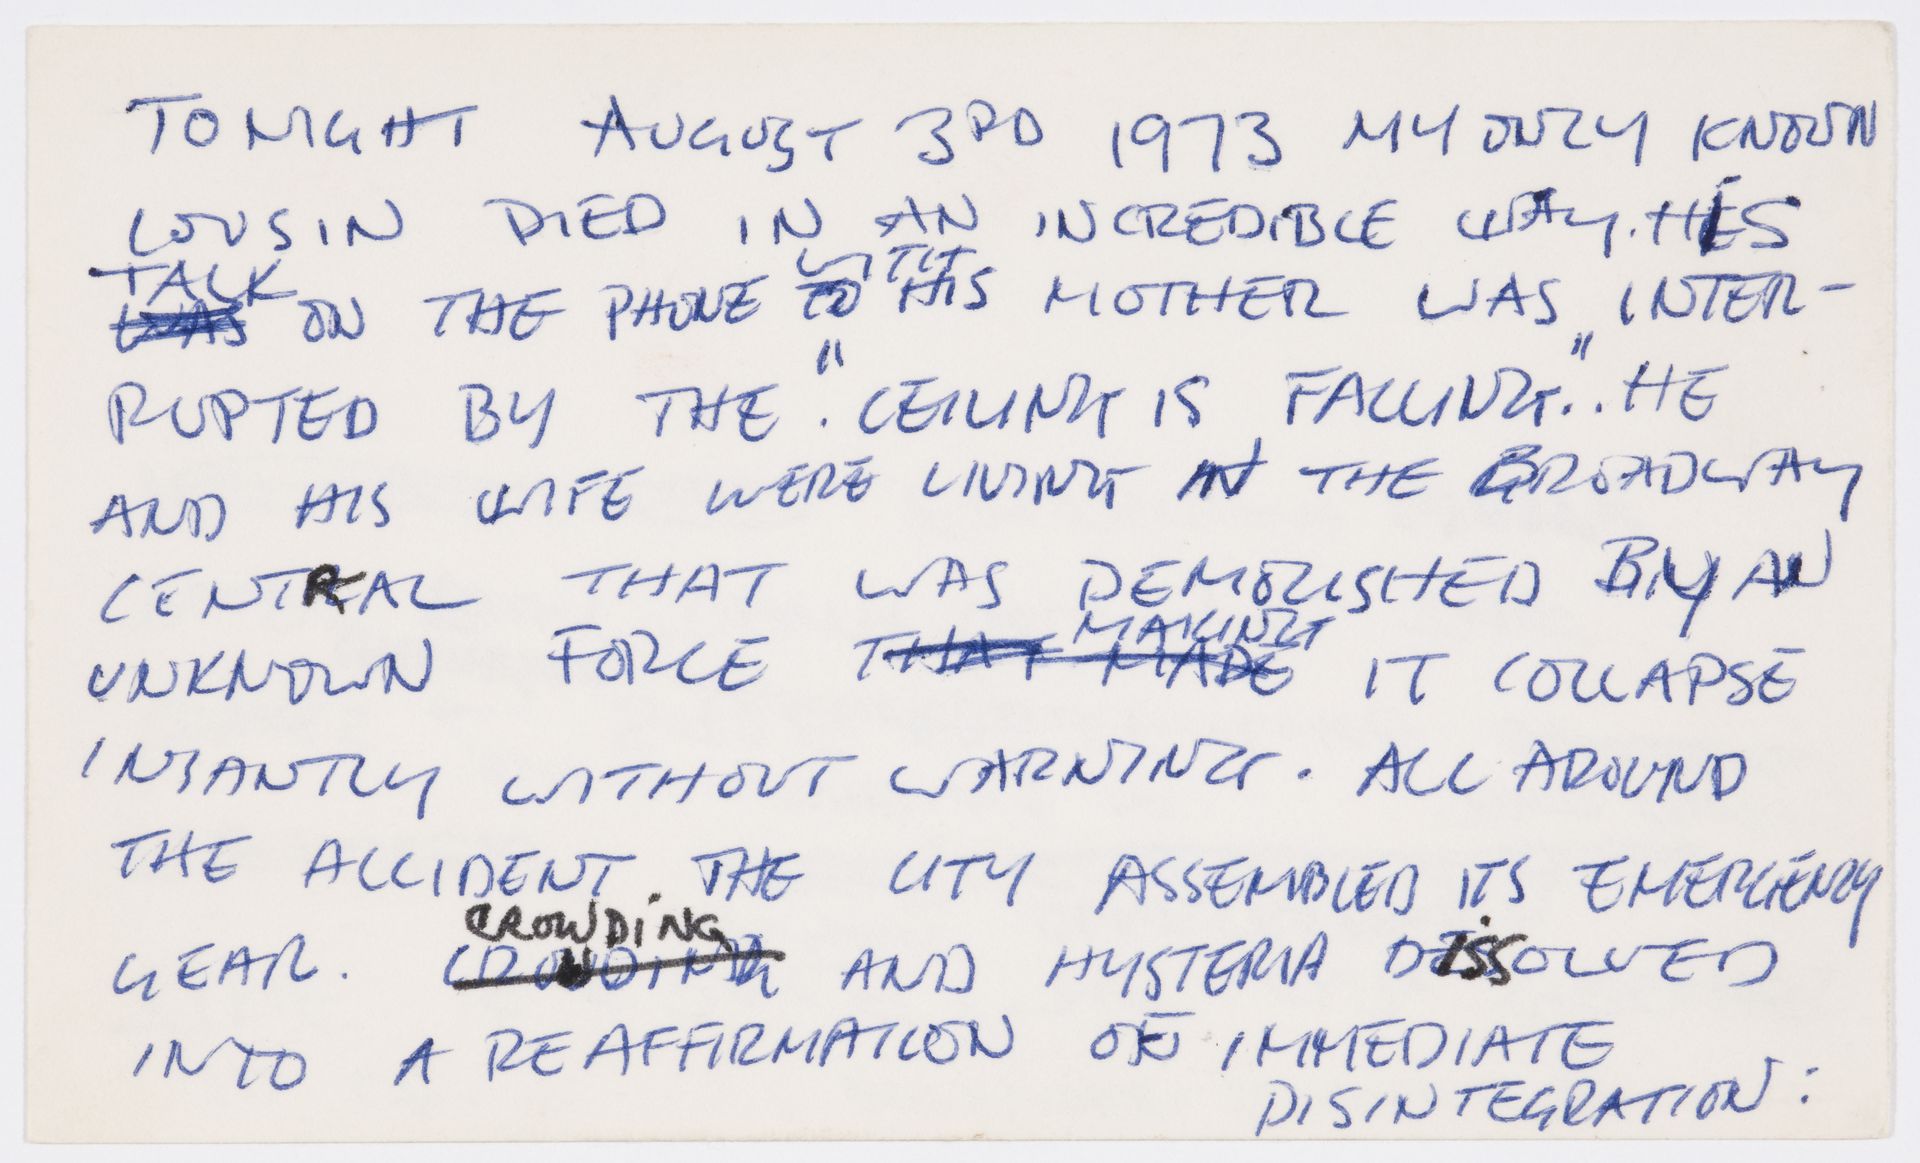 TONIGHT AUGUST 3RD 1973 MY ONLY KNOWN
COUSIN DIED IN AN INCREDIBLE WAY. HIS
TALK
WAS ON THE PHONE TO WITH HIS MOTHER WAS INTER-
RUPTED BY THE. "CEILING IS FALLING".. HE
AND HIS WIFE WERE LIVING IN THE BROADWAY
CENTRAL THAT WAS DEMOLISHED BY AN
MAKING
UNKNOWN FORCE THAT MADE IT COLLAPSE
INSANTLY WITHOUT WARNING. ALL AROUND
THE ACCIDENT. THE CITY ASSEMBLED ITS EMERGENCY
CROWDING
GEAR. CROWDING AND HYSTERIA DISSOLVED
INTO A REAFFIRMATION OF IMMEDIATE
DISINTEGRATION: